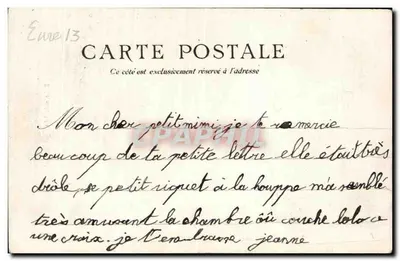 Eure 13
CARTE POSTALE
Ce côté est exclusivement réservé à l'adresse
Mon cher petit mimi, je te remercie
beaucoup de ta petite lettre elle était très
drôle, se petit riquet à la houppe m'a semblé
très amusant la chambre où couche lolo a
une croix. je t'embrasse jeanne